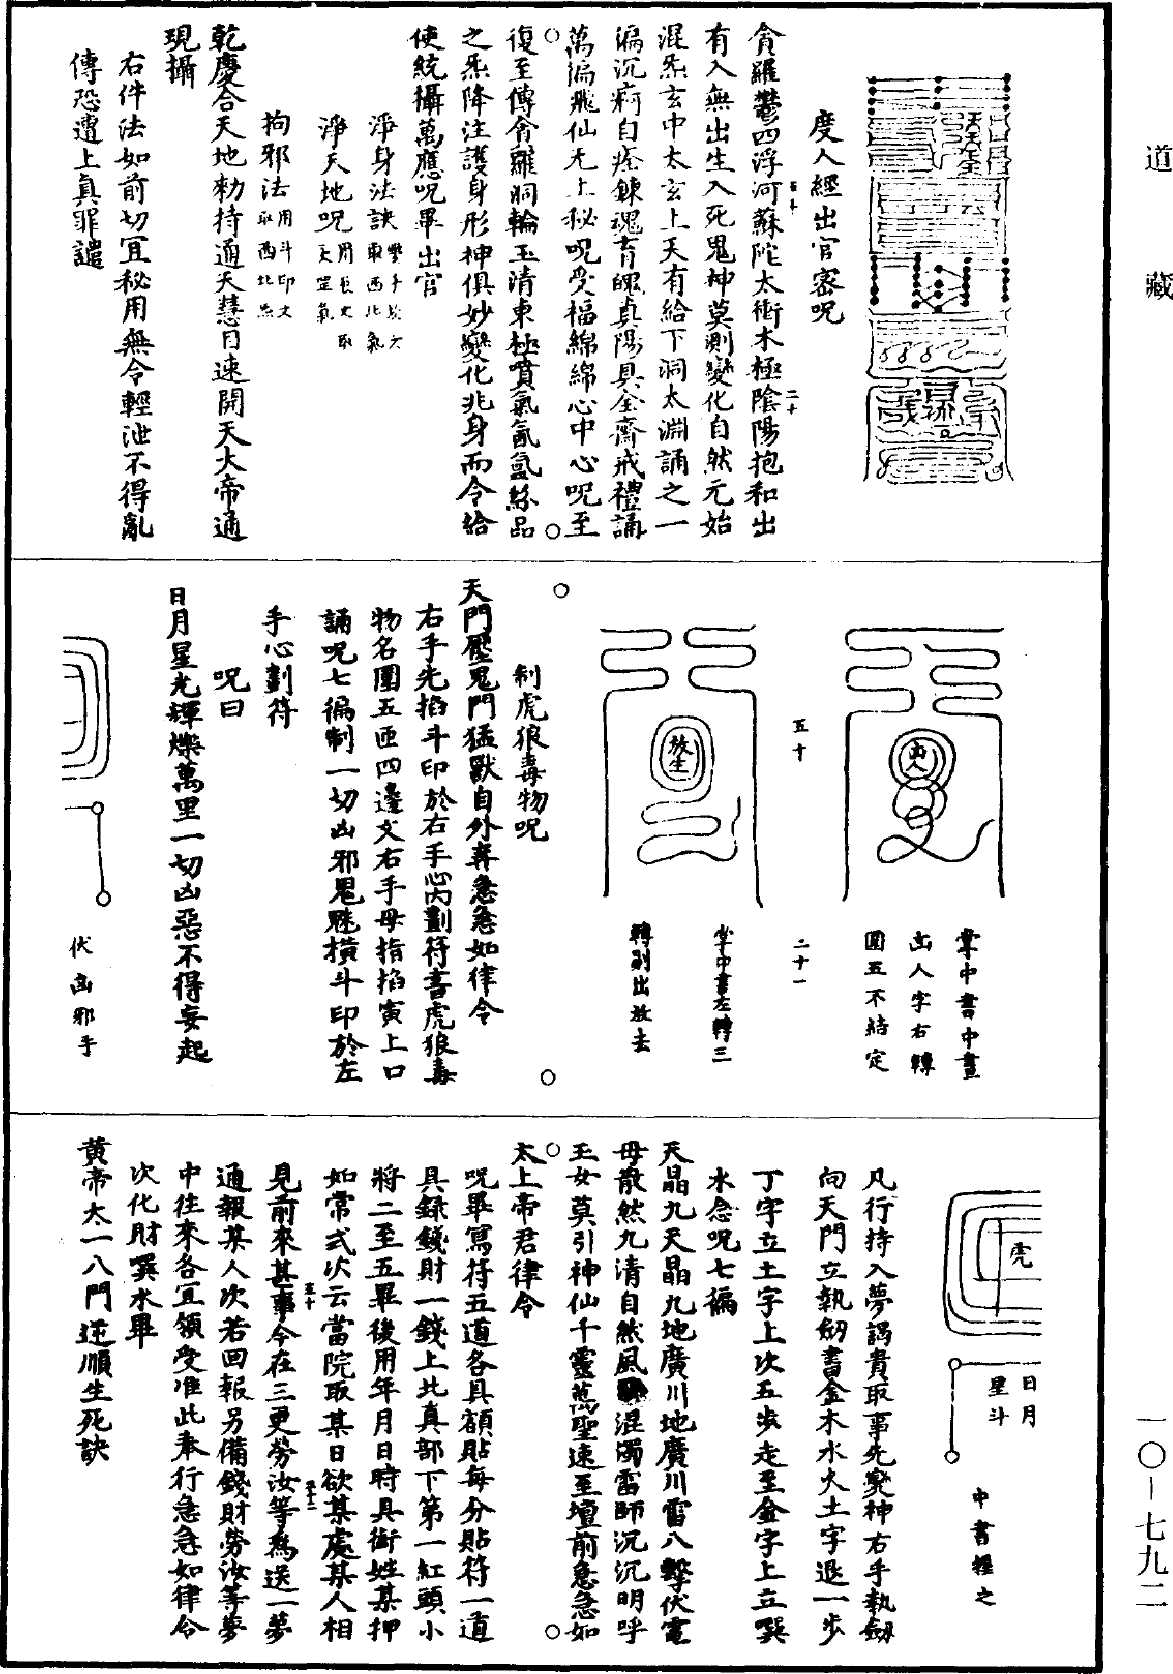 道藏
度人經出官密呪
貪羅鬱四浮河蘇陀太衝木極陰陽抱和出
有入無出生入死鬼神莫測變化自然元始
混炁玄中太玄上天有給下洞太淵誦之一
徧沉痾自痊鍊魂育魄真陽具全齋戒禮誦
萬徧飛仙无上秘呪受福綿綿心中心呪至
復至傳貪羅洞輪玉清東極噴氣氤氳絲品
之炁降注護身形神俱妙變化兆身而令給
使統攝萬應呪畢出官
淨身法訣
東西北氣
淨天地呪
天罡氣
拘邪法用斗印文
取西北炁
乾慶合天地勑持通天慧目速開天大帝通
現攝
右件法如前切宜秘用無令輕泄不得亂
傳恐遭上真罪譴
五十
二十
出人
掌中書中畫
出人字右轉
圓五不結定
五十
二十一
放生
掌中書左轉三
轉別出放去
制虎狼毒物呪
天門壓鬼門猛獸自外奔急急如律令
右手先掐斗印於右手心內劃符書虎狼毒
物名圍五匝四邊文右手母指掐寅上口
誦呪七徧制一切凶邪鬼魅橫斗印於左
手心劃符
呪曰
日月星光輝爍萬里一切凶惡不得妄起
伏凶邪手
虎
日月
星斗
中書捏之
凡行持入夢謁貴取事先奕神右手執劒
向天門立執劒書金木水火土字退一步
丁字立土字上次五步走至金字上立噀
水念呪七徧
天晶九天晶九地廣川地廣川雷八擊伏電
母散然九清自然風混濁雷師沉沉明呼
玉女莫引神仙千靈萬聖速至壇前急急如
太上帝君律令
呪畢寫符五道各具額貼每分貼符一道
具錄錢財一錢上北真部下第一紅頭小
將二至五畢後用年月日時具銜姓某押
如常式次云當院取某日欲某處某人相
見前來甚事今在三更勞汝等為送一夢
通報某人次若回報另備錢財勞汝等夢
中往來各宜領受准此奉行急急如律令
次化財噀水畢
黃帝太一八門逆順生死訣
五十
二十二
一〇-七九二